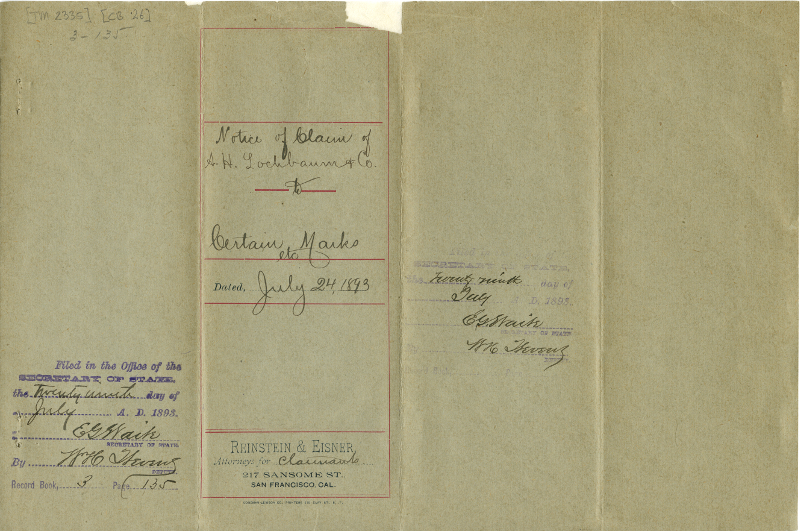 [TM 2335] [CB 26]
3-135
Notice of Claim of
A. H. Lochbaum & Co.
to
Certain Marks
etc
Dated, July 24, 1893
Filed in the Office of the
SECRETARY OF STATE,
the Twenty ninth day of
July A. D. 1893.
E G Waite
SECRETARY OF STATE
By W H Stevens
DEPUTY.
Record Book, 3 Page 135
REINSTEIN & EISNER,
Attorneys for Claimants
217 SANSOME ST.,
SAN FRANCISCO, CAL.
SECRETARY OF STATE,
the Twenty ninth day of
July A. D. 1893.
E G Waite
SECRETARY OF STATE
W H Stevens
DEPUTY.